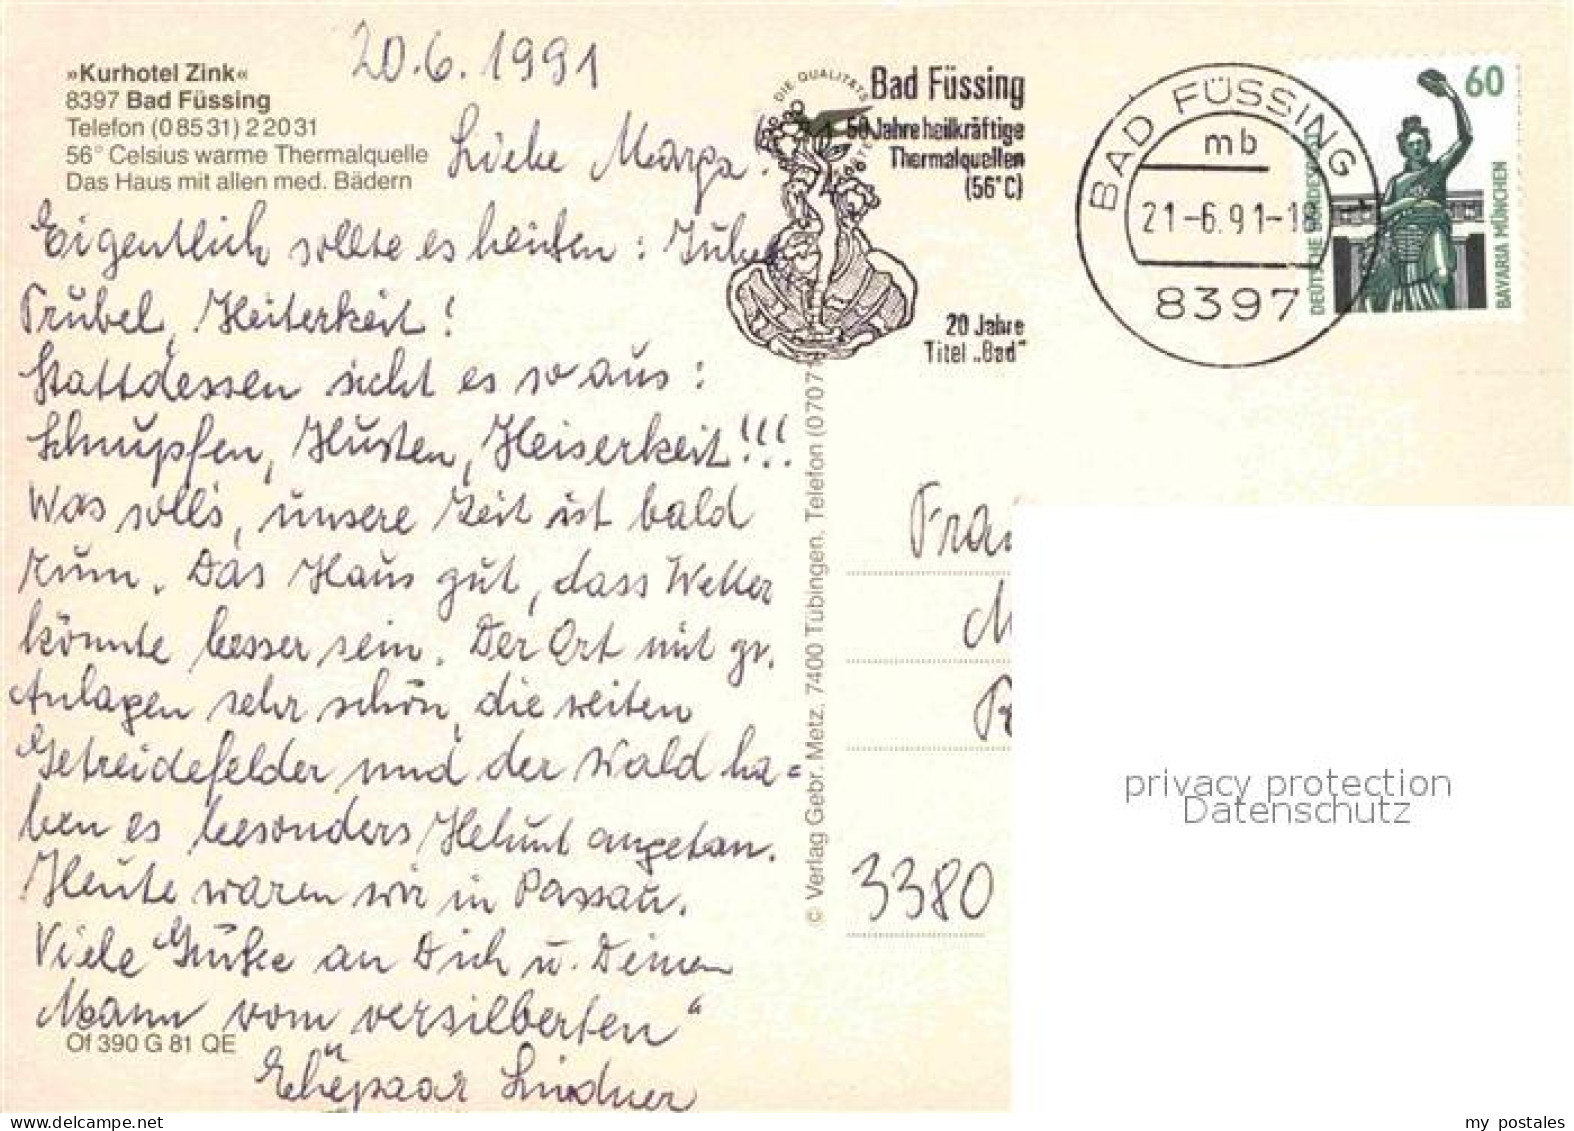 »Kurhotel Zink«
8397 Bad Füssing
Telefon (08531) 22031
56° Celsius warme Thermalquelle
Das Haus mit allen med. Bädern
20.6.1991
Liebe Marga!
Eigentlich sollte es heißen: Jubel
Trubel, Heiterkeit!
Stattdessen sieht es so aus:
Schnupfen, Husten, Heiserkeit!!!
Was soll's, unsere Zeit ist bald
rum. Das Haus gut, dass Wetter
könnte besser sein. Der Ort mit gr.
Anlagen sehr schön, die weiten
Getreidefelder und der Wald ha=
ben es besonders Helmut angetan.
Heute waren wir in Passau.
Viele Grüße an Dich u. Deinen
Mann vom versilberten"
Ehepaar Lindner
Of 390 G 81 QE
DIE QUALITÄTS
Bad Füssing
50 Jahre heilkräftige
Thermalquellen
(56°C)
20 Jahre
Titel „Bad"
BAD FÜSSING
mb
21-6.91-1
8397
60
DEUTSCHE BUNDESPOST
BAVARIA MÜNCHEN
© Verlag Gebr. Metz, 7400 Tübingen, Telefon (0707 1
Fra
M
3380
privacy protection
Datenschutz
my postales